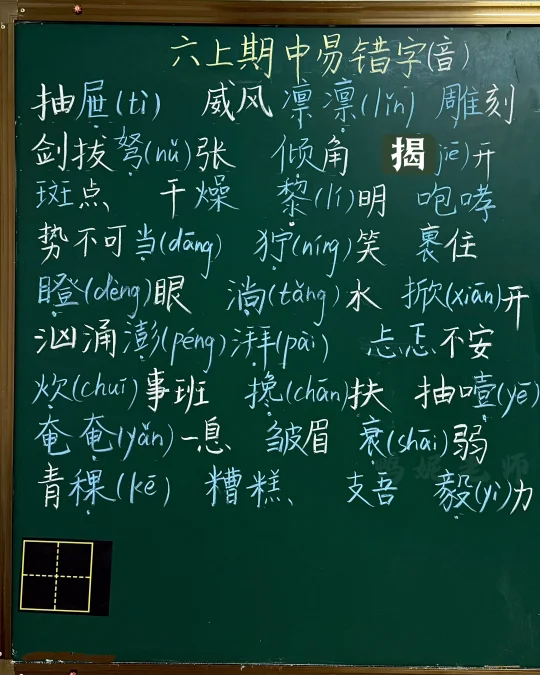 六上期中易错字(音)
抽屉(tì) 威风凛凛(lǐn) 雕刻
剑拔弩(nǔ)张 倾角 揭(jiē)开
斑点 干燥 黎(lí)明 咆哮
势不可当(dāng) 狞(níng)笑 裹住
瞪(dèng)眼 淌(tǎng)水 掀(xiān)开
汹涌澎(péng)湃(pài) 忐忑不安
炊(chuī)事班 搀(chān)扶 抽噎(yē)
奄奄(yǎn)一息 皱眉 衰(shāi)弱
青稞(kē) 糟糕 支吾 毅(yì)力